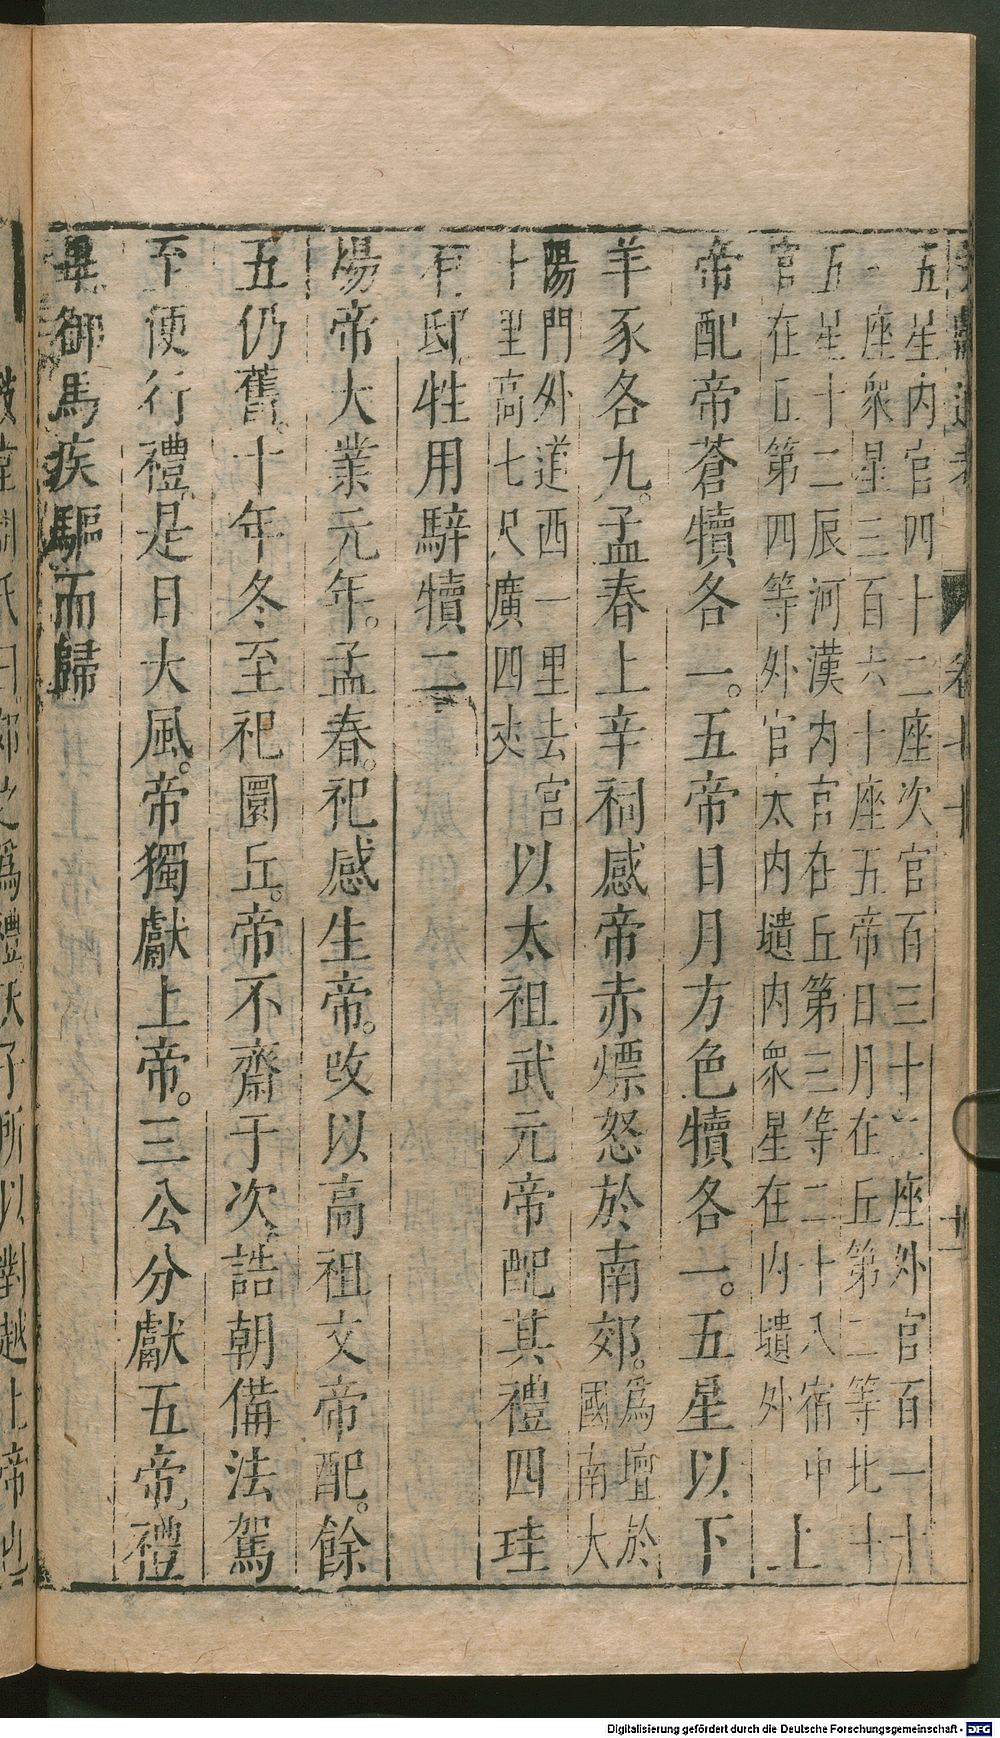 五星內官四十二座次官百三十二座外官百一十
一座衆星三百六十座五帝日月在丘第二等北十
五星十二辰河漢內官在丘第三等二十八宿中
官在丘第四等外官在內壝內衆星在內壝外 上
帝配帝蒼犢各一。五帝日月方色犢各一。五星以下
羊豕各九。孟春上辛祠感帝赤熛怒於南郊。爲壇於
國南大
陽門外道西一里去宮
十里高七尺廣四丈
以太祖武元帝配其禮四珪
有邸。牲用騂犢二
煬帝大業元年。孟春。祀感生帝。改以高祖文帝配。餘
五仍舊。十年冬至祀圜丘。帝不齋于次。詰朝備法駕
至便行禮。是日大風。帝獨獻上帝。三公分獻五帝。禮
畢御馬疾驅而歸
卷七十
氏曰郊之爲禮天子所以對越上帝也
Digitalisierung gefördert durch die Deutsche Forschungsgemeinschaft - DFG